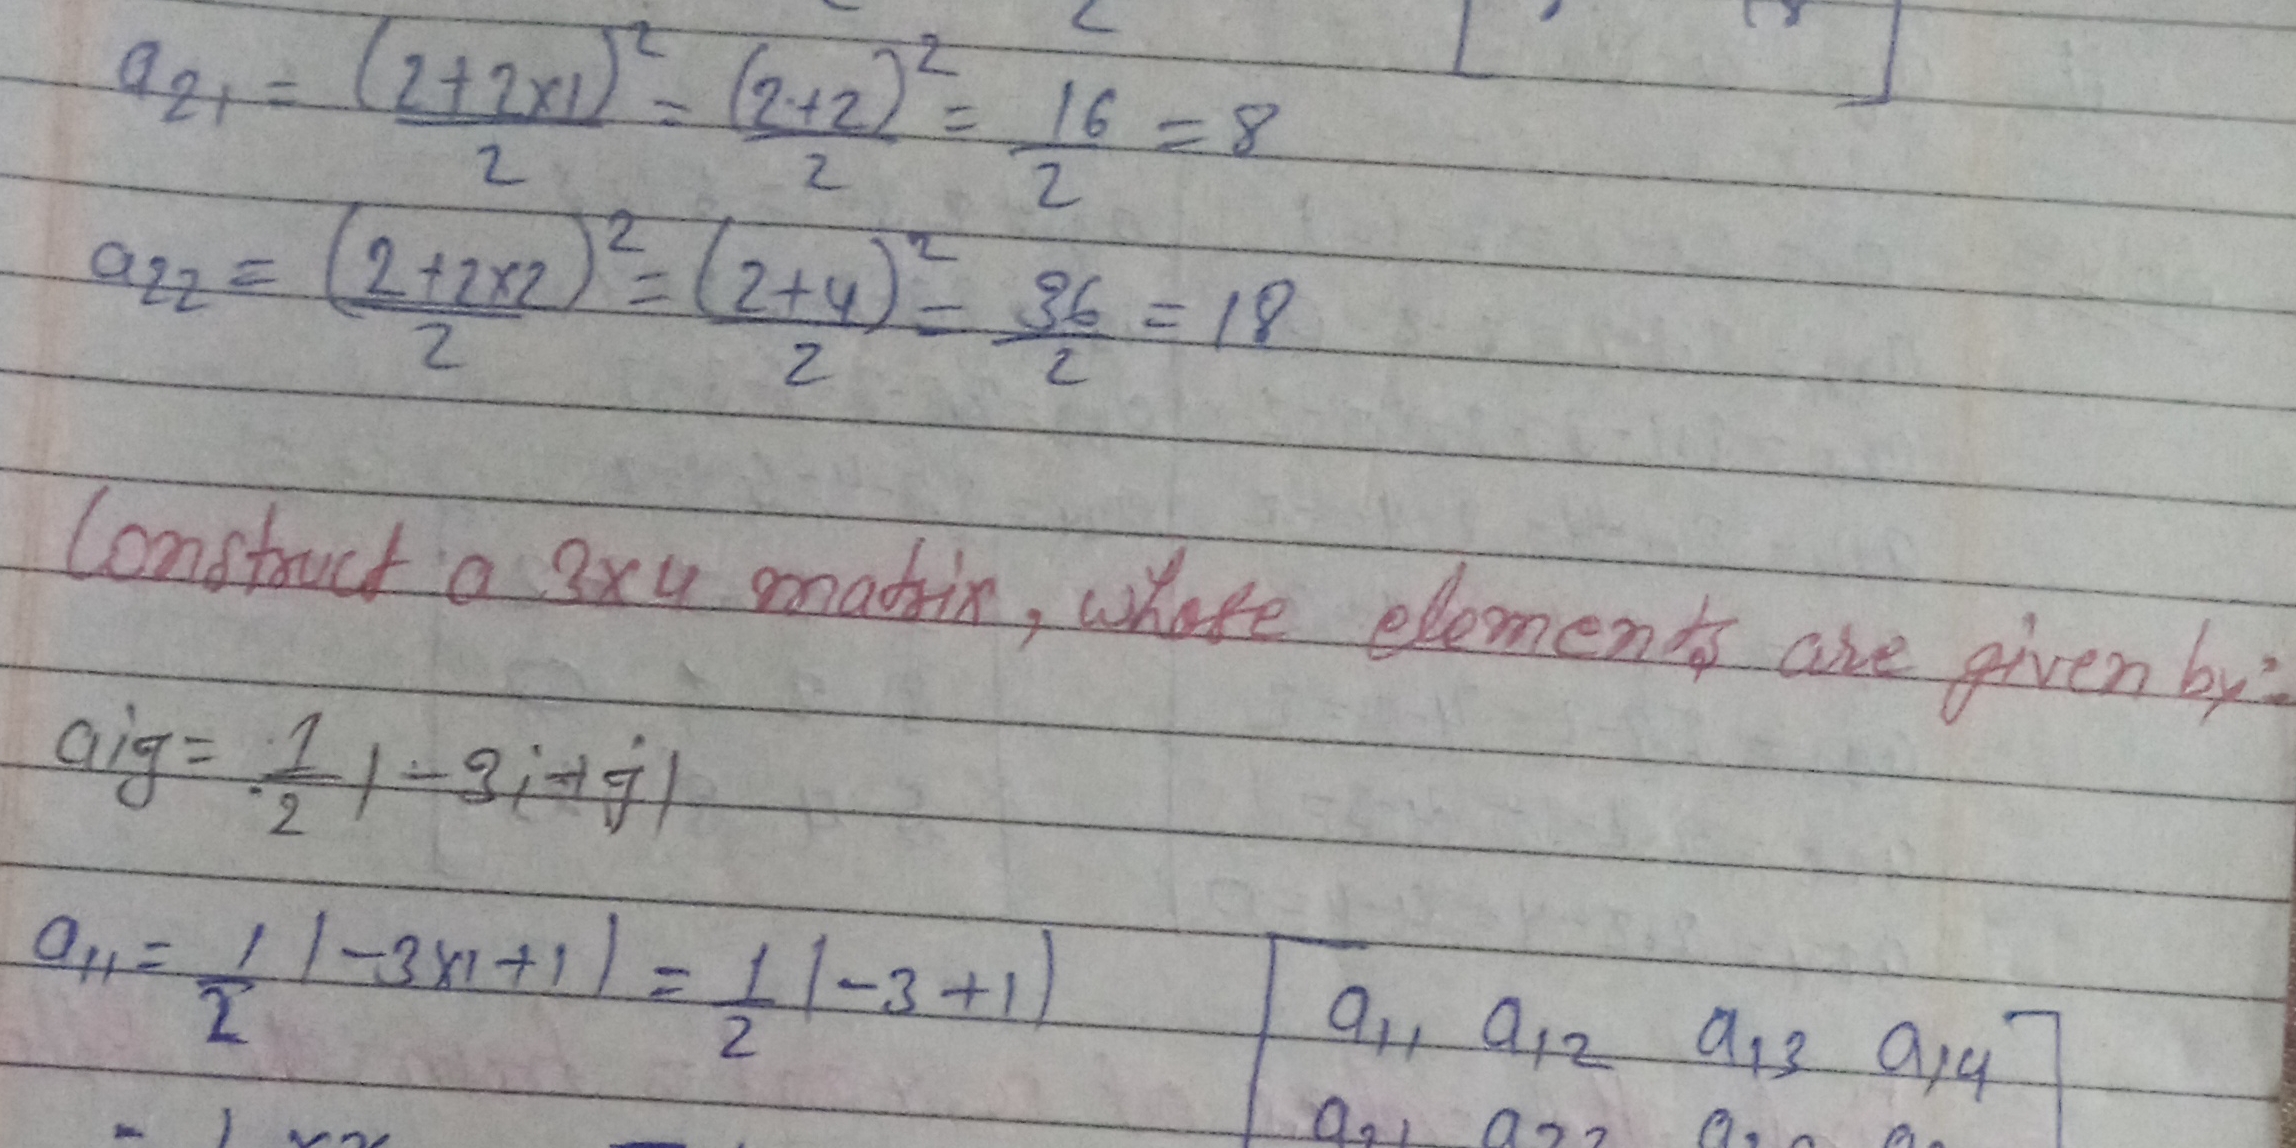 a21 = (2+2×1)²/2 = (2+2)²/2 = 16/2 = 8
a22 = (2+2×2)²/2 = (2+4)²/2 = 36/2 = 18
Construct a 3×4 matrix, whose elements are given by:-
aij = 1/2 |-3i+j|
a11 = 1/2 |-3×1+1| = 1/2 |-3+1|
a11 a12 a13 a14
a21 a22